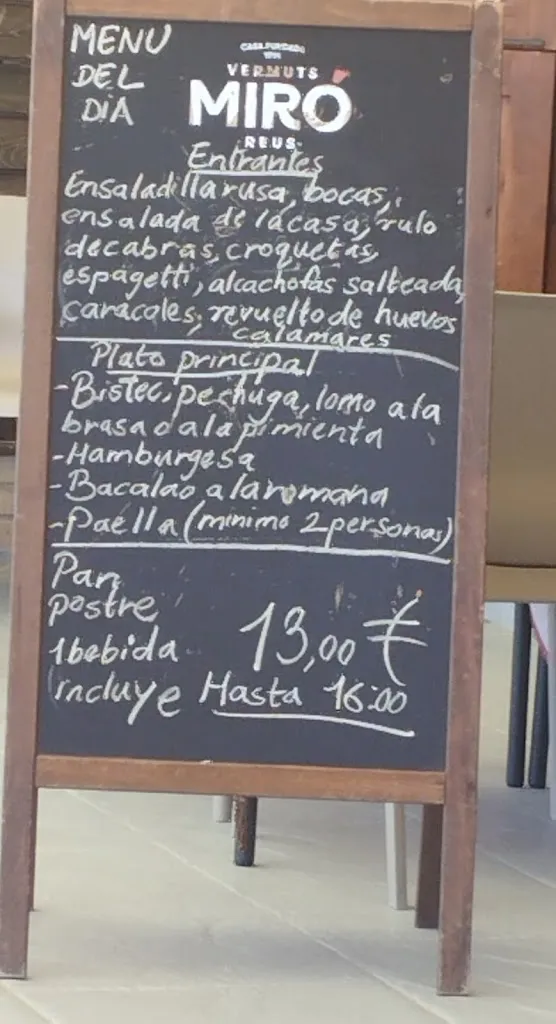 MENU
DEL
DIA
CASA FUNDADA
VERMUTS
MIRÓ
REUS
Entrantes
Ensaladilla rusa, bocas,
ensalada de la casa, rulo
de cabras, croquetas,
espagetti, alcachofas salteada,
caracoles, revuelto de huevos
, calamares
Plato principal
-Bistec, pechuga, lomo a la
brasa o a la pimienta
-Hamburgesa
-Bacalao a la romana
-Paella (minimo 2 personas)
Pan
postre
1 bebida
incluye
13,00 €
Hasta 16:00